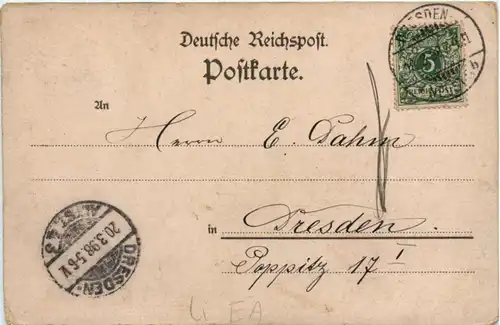 Deutsche Reichspost.
Postkarte.
DRESDEN
5
An
Herrn E. Dahm
in Dresden.
Poppitz 17 I
DRESDEN
20.3.98.5-6V.
Li EA